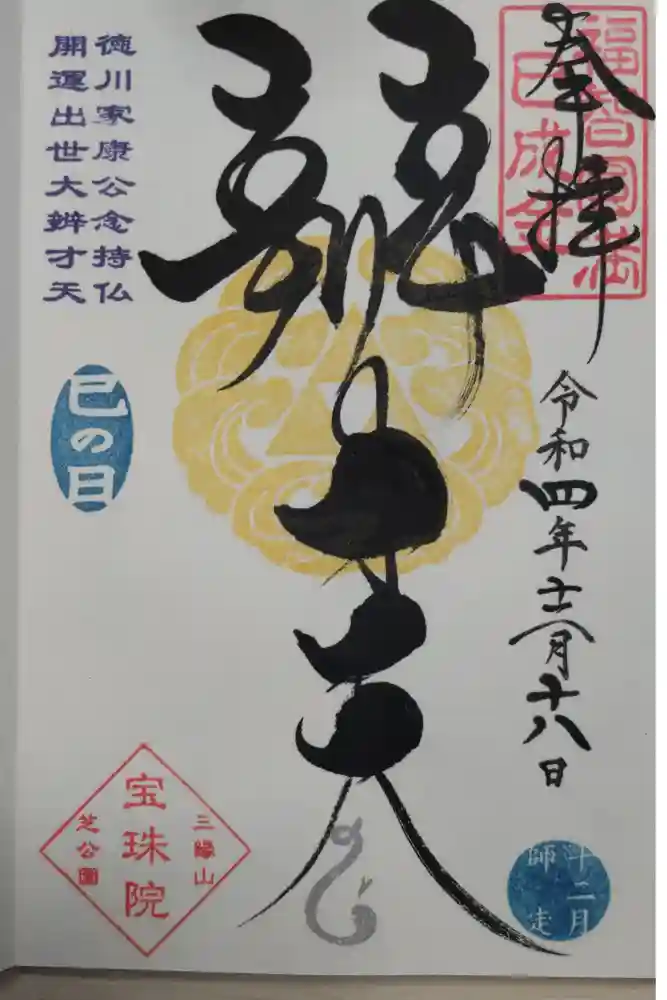 奉拝
福智円満
巳成金
令和四年十二月十八日
辨才天
徳川家康公念持仏
開運出世大辨才天
巳の日
三縁山
宝珠院
芝公園
十二月
師走